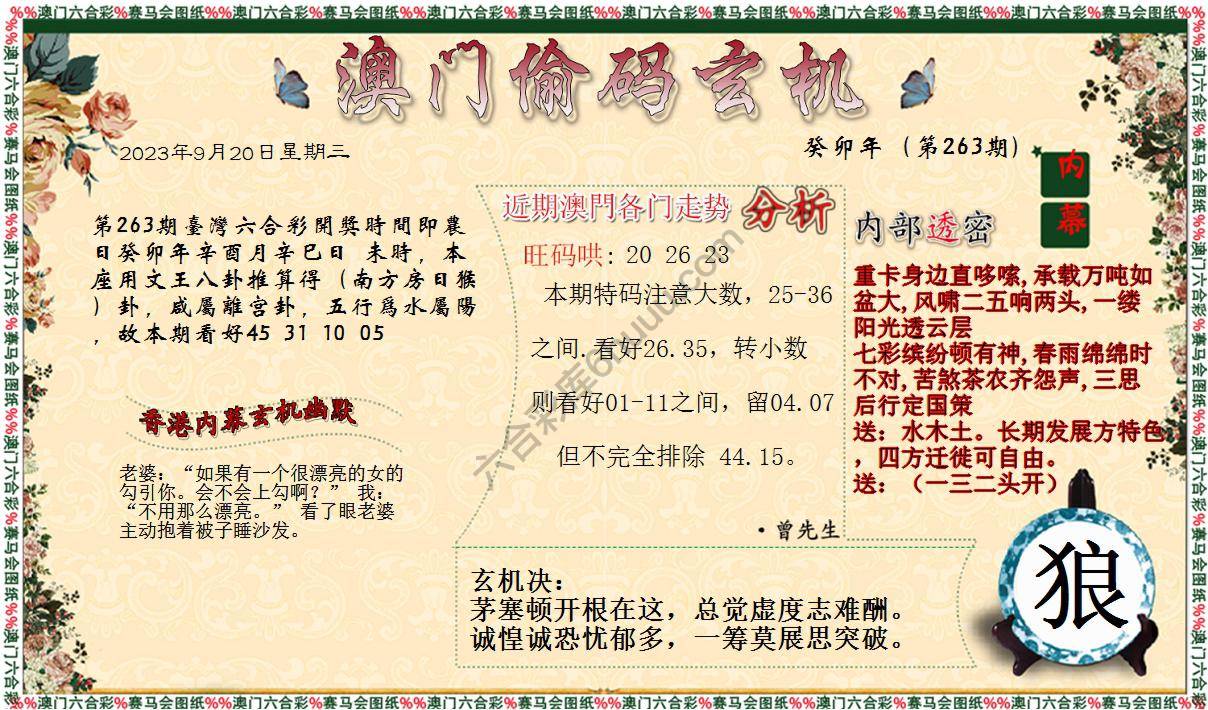 %%澳门六合彩%赛马会图纸%%澳门六合彩%赛马会图纸%%澳门六合彩%赛马会图纸%%澳门六合彩%赛马会图纸%%澳门六合彩%赛马会图纸%%澳门六合彩%赛马会图纸
澳门偷码玄机
2023年9月20日星期三
癸卯年（第263期）
内幕
第263期臺灣六合彩開獎時間即農
日癸卯年辛酉月辛巳日 未時，本
座用文王八卦推算得（南方房日猴
）卦，咸屬離宫卦，五行爲水屬陽
，故本期看好45 31 10 05
香港内幕玄机幽默
老婆：“如果有一个很漂亮的女的
勾引你。会不会上勾啊？” 我：
“不用那么漂亮。” 看了眼老婆
主动抱着被子睡沙发。
近期澳門各门走势 分析
旺码哄: 20 26 23
本期特码注意大数，25-36
之间.看好26.35，转小数
则看好01-11之间，留04.07
但不完全排除 44.15。
·曾先生
内部透密
重卡身边直哆嗦,承载万吨如
盆大,风啸二五响两头,一缕
阳光透云层
七彩缤纷顿有神,春雨绵绵时
不对,苦煞茶农齐怨声,三思
后行定国策
送：水木土。长期发展方特色
，四方迁徙可自由。
送：（一三二头开）
玄机决：
茅塞顿开根在这，总觉虚度志难酬。
诚惶诚恐忧郁多，一筹莫展思突破。
狼
六合彩库6huuu.com
%%澳门六合彩%赛马会图纸%%澳门六合彩%赛马会图纸%%澳门六合彩%赛马会图纸%%澳门六合彩%赛马会图纸%%澳门六合彩%赛马会图纸%%澳门六合彩%赛马会图纸